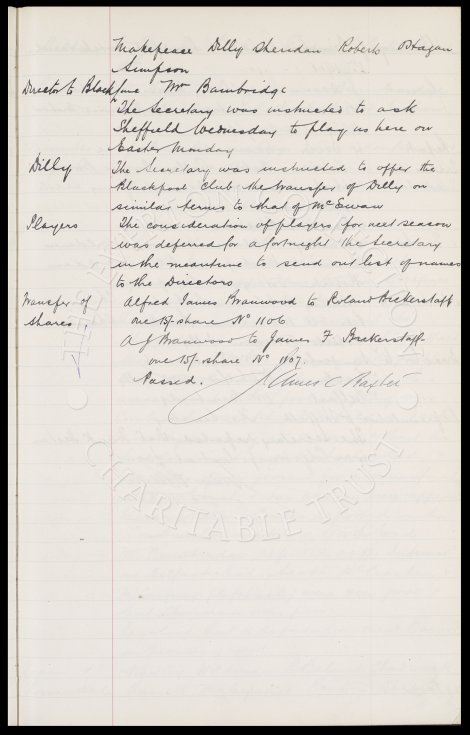 Makepeace Dilly Sheridan Roberts O'Hagan
Simpson
Director to Blackpool Mr Bainbridge
The Secretary was instructed to ask
Sheffield Wednesday to play us here on
Easter Monday
Dilly The Secretary was instructed to offer the
Blackpool Club the transfer of Dilly on
similar terms to that of McEwan
Players The consideration of players for next season
was deferred for a fortnight the Secretary
in the meantime to send out list of names
to the Directors
Transfer of Alfred James Bramwood to Roland Bickerstaff
Shares one 15/- share No 1106
A J Bramwood to James F Bickerstaff
one 15/- share No 1107.
Passed. James C Baxter
THE
CHARITABLE TRUST